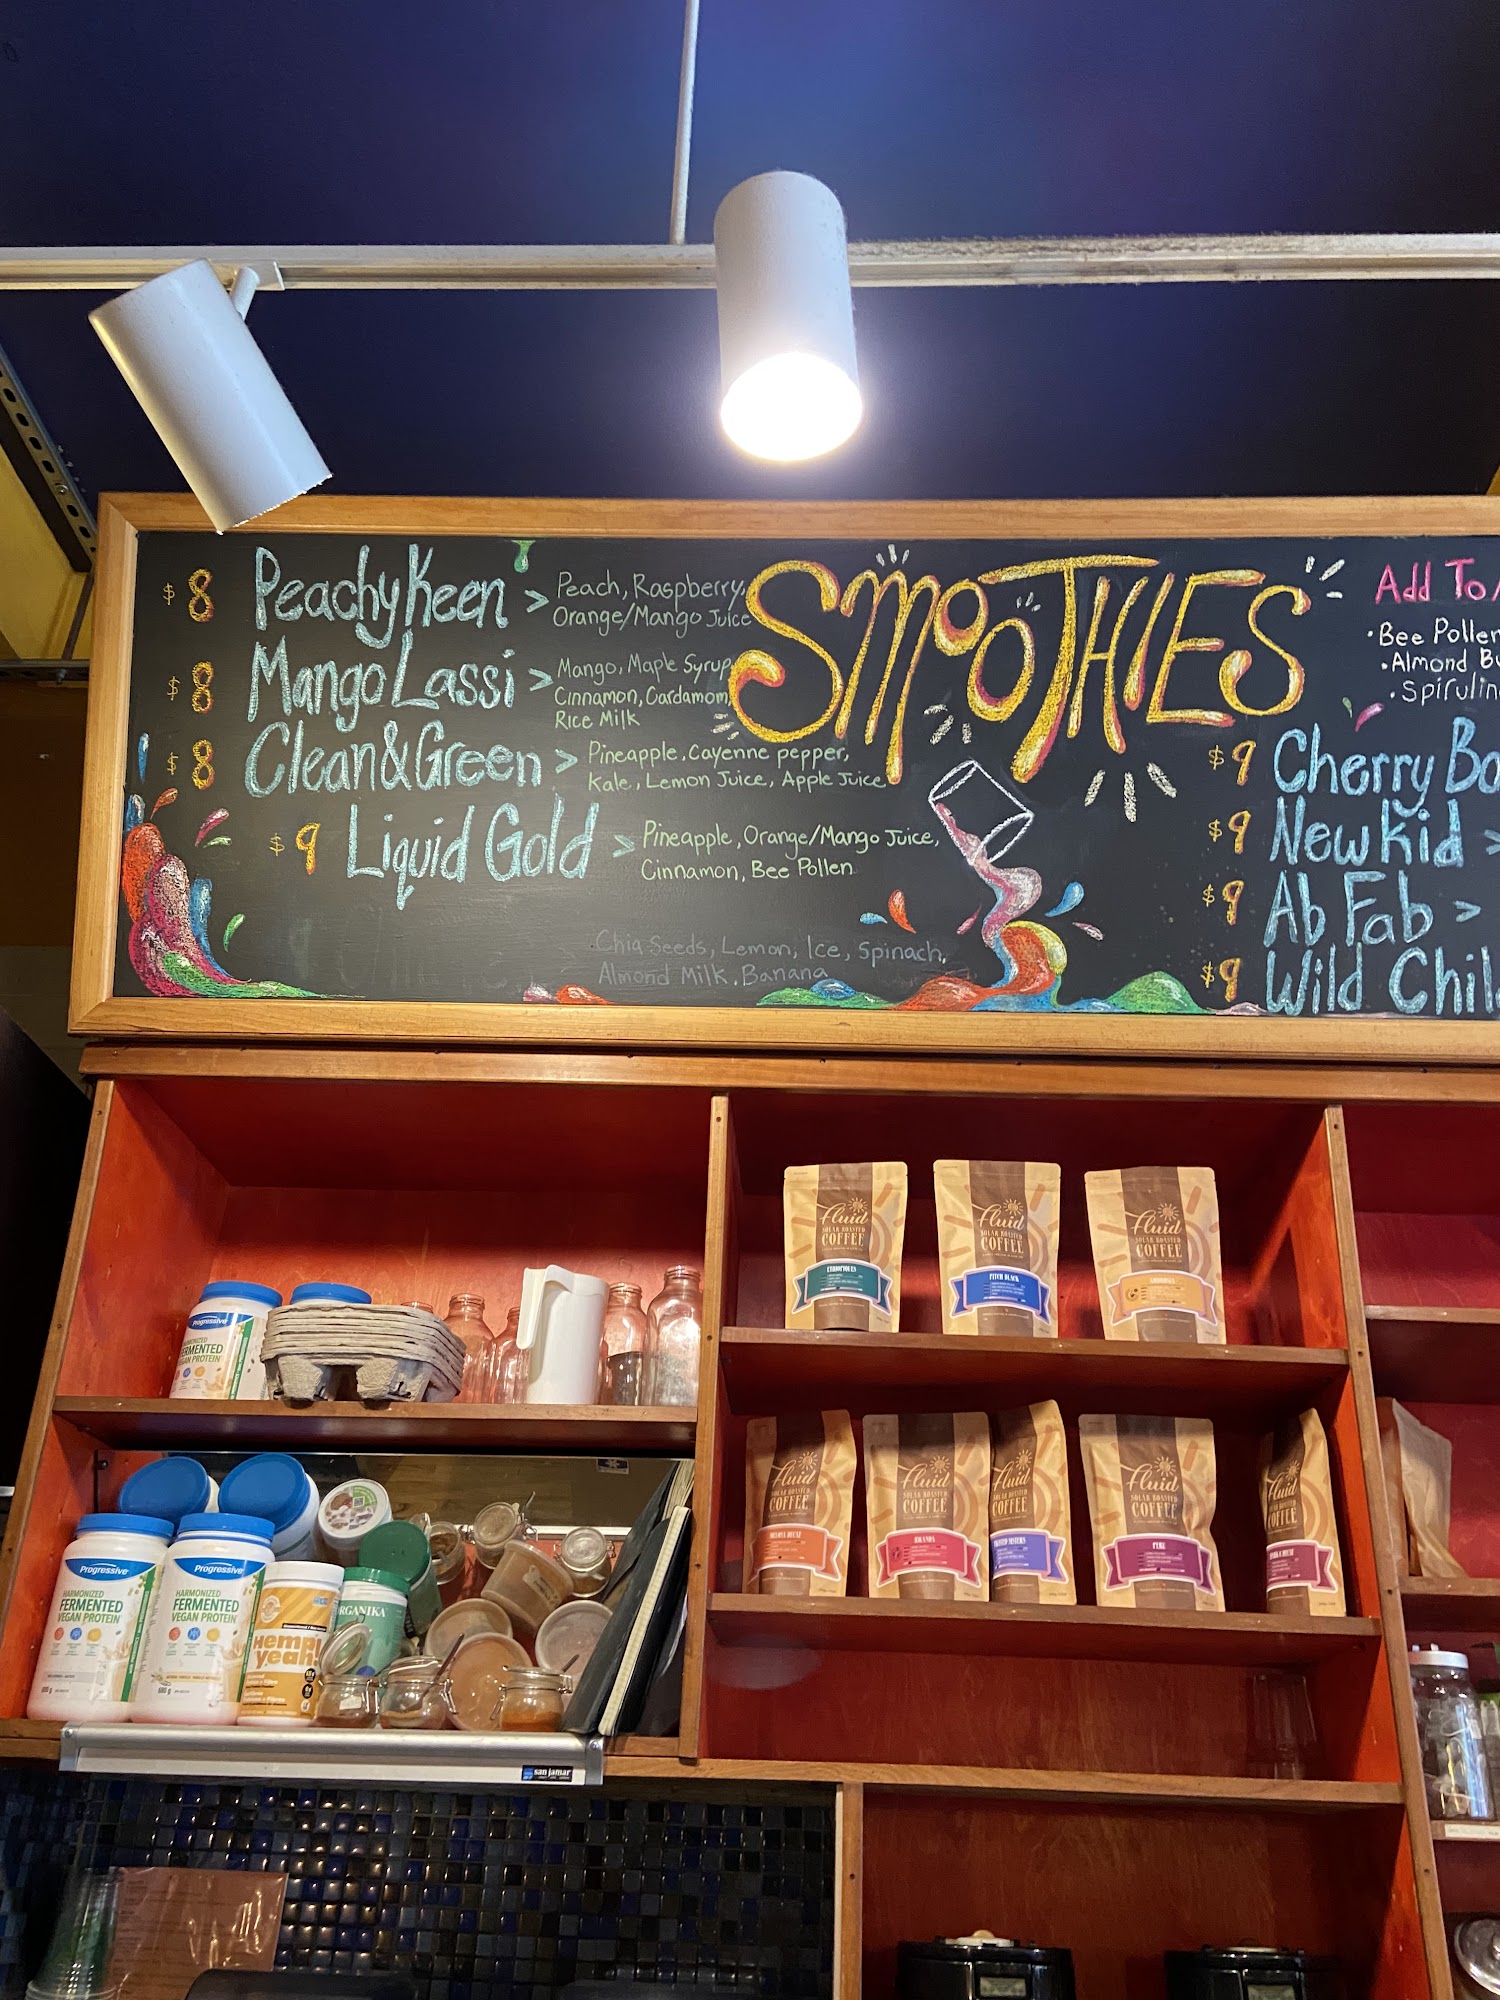 $8 Peachy Keen > Peach, Raspberry,
Orange/Mango Juice
$8 Mango Lassi > Mango, Maple Syrup,
Cinnamon, Cardamom,
Rice Milk
$8 Clean & Green > Pineapple, Cayenne pepper,
Kale, Lemon Juice, Apple Juice
$9 Liquid Gold > Pineapple, Orange/Mango Juice,
Cinnamon, Bee Pollen
Chia Seeds, Lemon, Ice, Spinach,
Almond Milk, Banana
SMOOTHIES
Add To
• Bee Pollen
• Almond Bu
• Spirulin
$9 Cherry Bo
$9 New Kid >
$9 Ab Fab >
$9 Wild Chil
fluid
SOLAR ROASTED
COFFEE
fluid
SOLAR ROASTED
COFFEE
PITCH BLACK
fluid
SOLAR ROASTED
COFFEE
Progressive
FERMENTED
VEGAN PROTEIN
fluid
SOLAR ROASTED
COFFEE
fluid
SOLAR ROASTED
COFFEE
fluid
SOLAR ROASTED
COFFEE
TWISTED SISTERS
fluid
SOLAR ROASTED
COFFEE
PERU
fluid
SOLAR ROASTED
COFFEE
Progressive
HARMONIZED
FERMENTED
VEGAN PROTEIN
Progressive
HARMONIZED
FERMENTED
VEGAN PROTEIN
Hemp
yeah!
ORGANIKA
san jamar